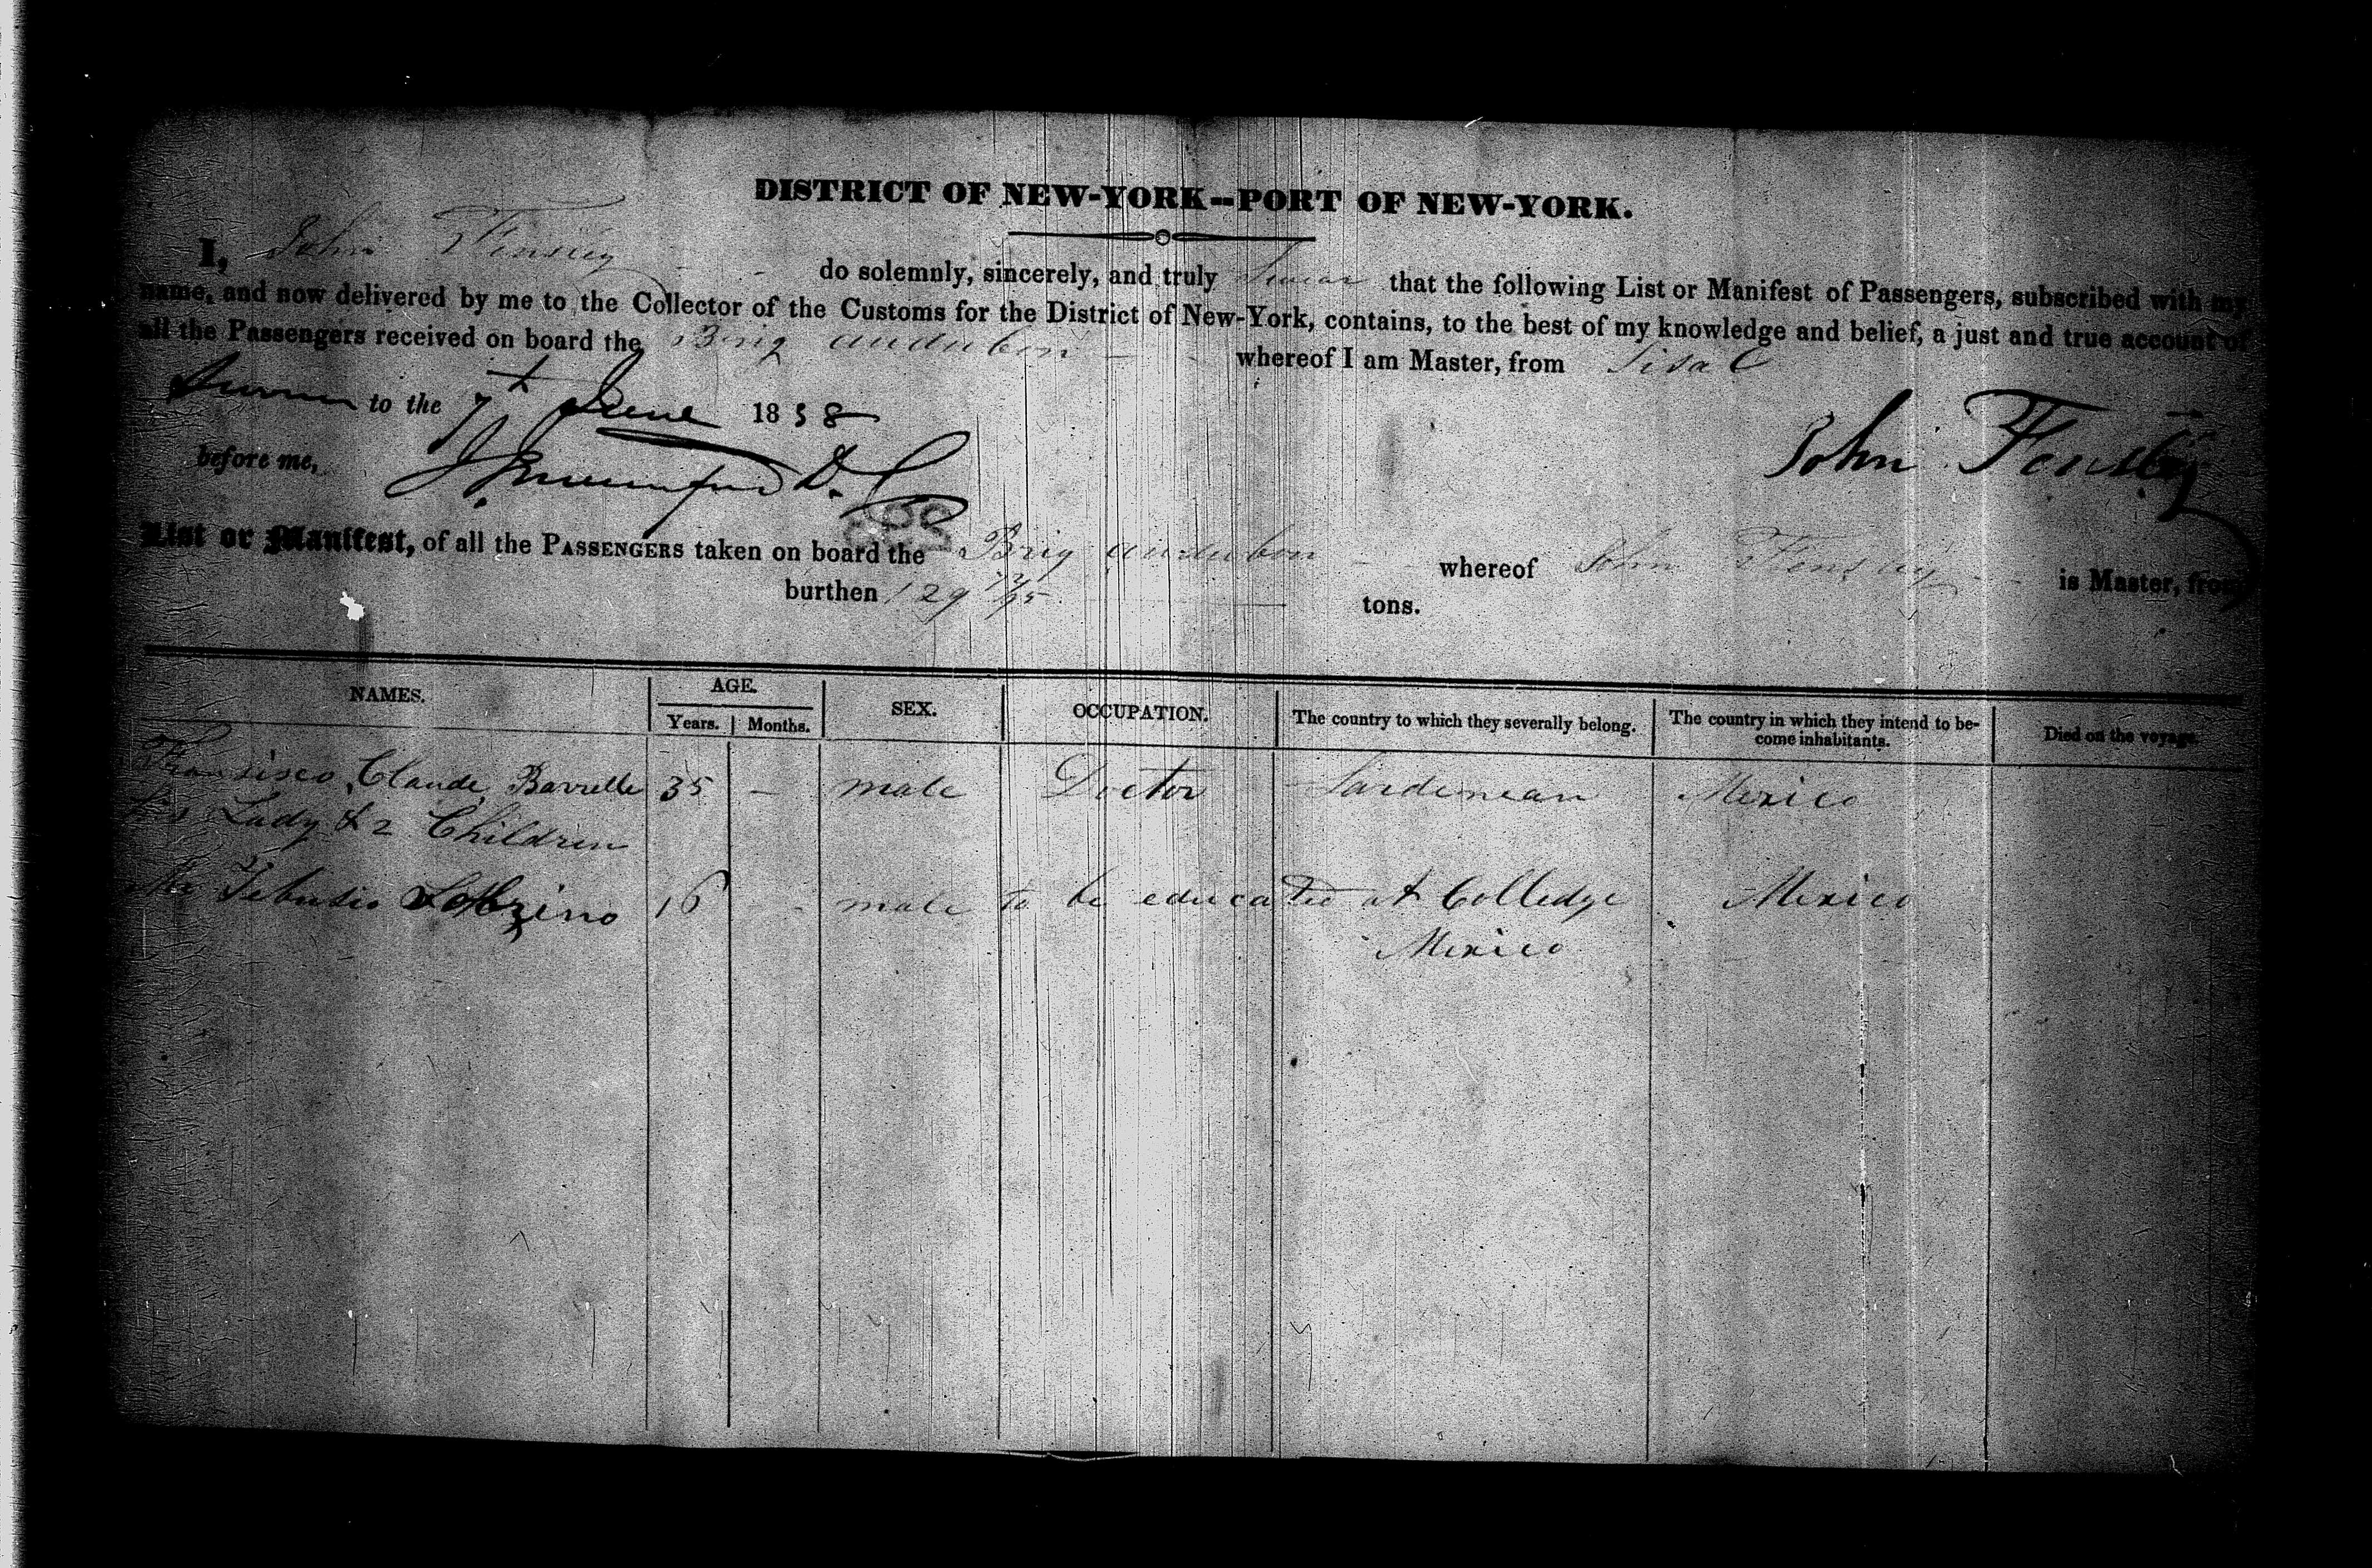 DISTRICT OF NEW-YORK--PORT OF NEW-YORK.
I, John Fensley do solemnly, sincerely, and truly swear that the following List or Manifest of Passengers, subscribed with my
name, and now delivered by me to the Collector of the Customs for the District of New-York, contains, to the best of my knowledge and belief, a just and true account of
all the Passengers received on board the Brig Audubon whereof I am Master, from Sisal
Sworn to the 7th June 1838
John Fensley
before me, D. C
List or Manifest, of all the PASSENGERS taken on board the Brig Audubon whereof John Fensley is Master, from
burthen 129 /95 tons.
NAMES. AGE. SEX. OCCUPATION. The country to which they severally belong. The country in which they intend to be-
come inhabitants. Died on the voyage.
Years. Months.
Fransisco Claude Barrelle 35 - male Doctor Sardenean Mexico
his Lady & 2 Children
Mr 16 - male to be educated at Colledge Mexico
Mexico